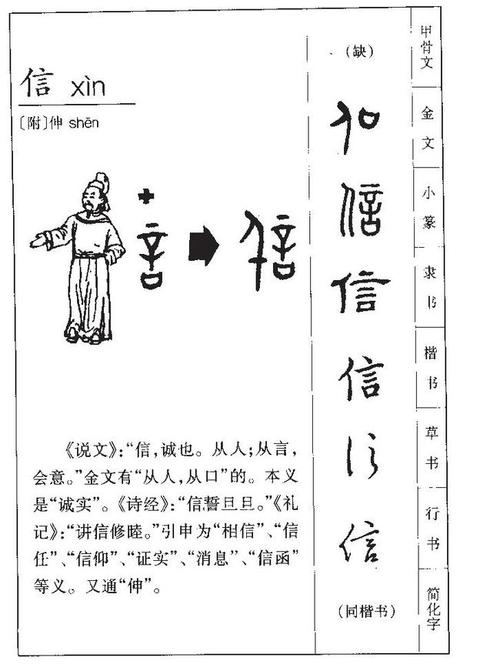 信 xìn
〔附〕伸 shēn
《说文》：“信，诚也。从人；从言，
会意。”金文有“从人，从口”的。本义
是“诚实”。《诗经》：“信誓旦旦。”《礼
记》：“讲信修睦。”引申为“相信”、“信
任”、“信仰”、“证实”、“消息”、“信函”
等义。又通“伸”。
（缺）
信
信
信
信
信
信
（同楷书）
甲骨文
金文
小篆
隶书
楷书
草书
行书
简化字